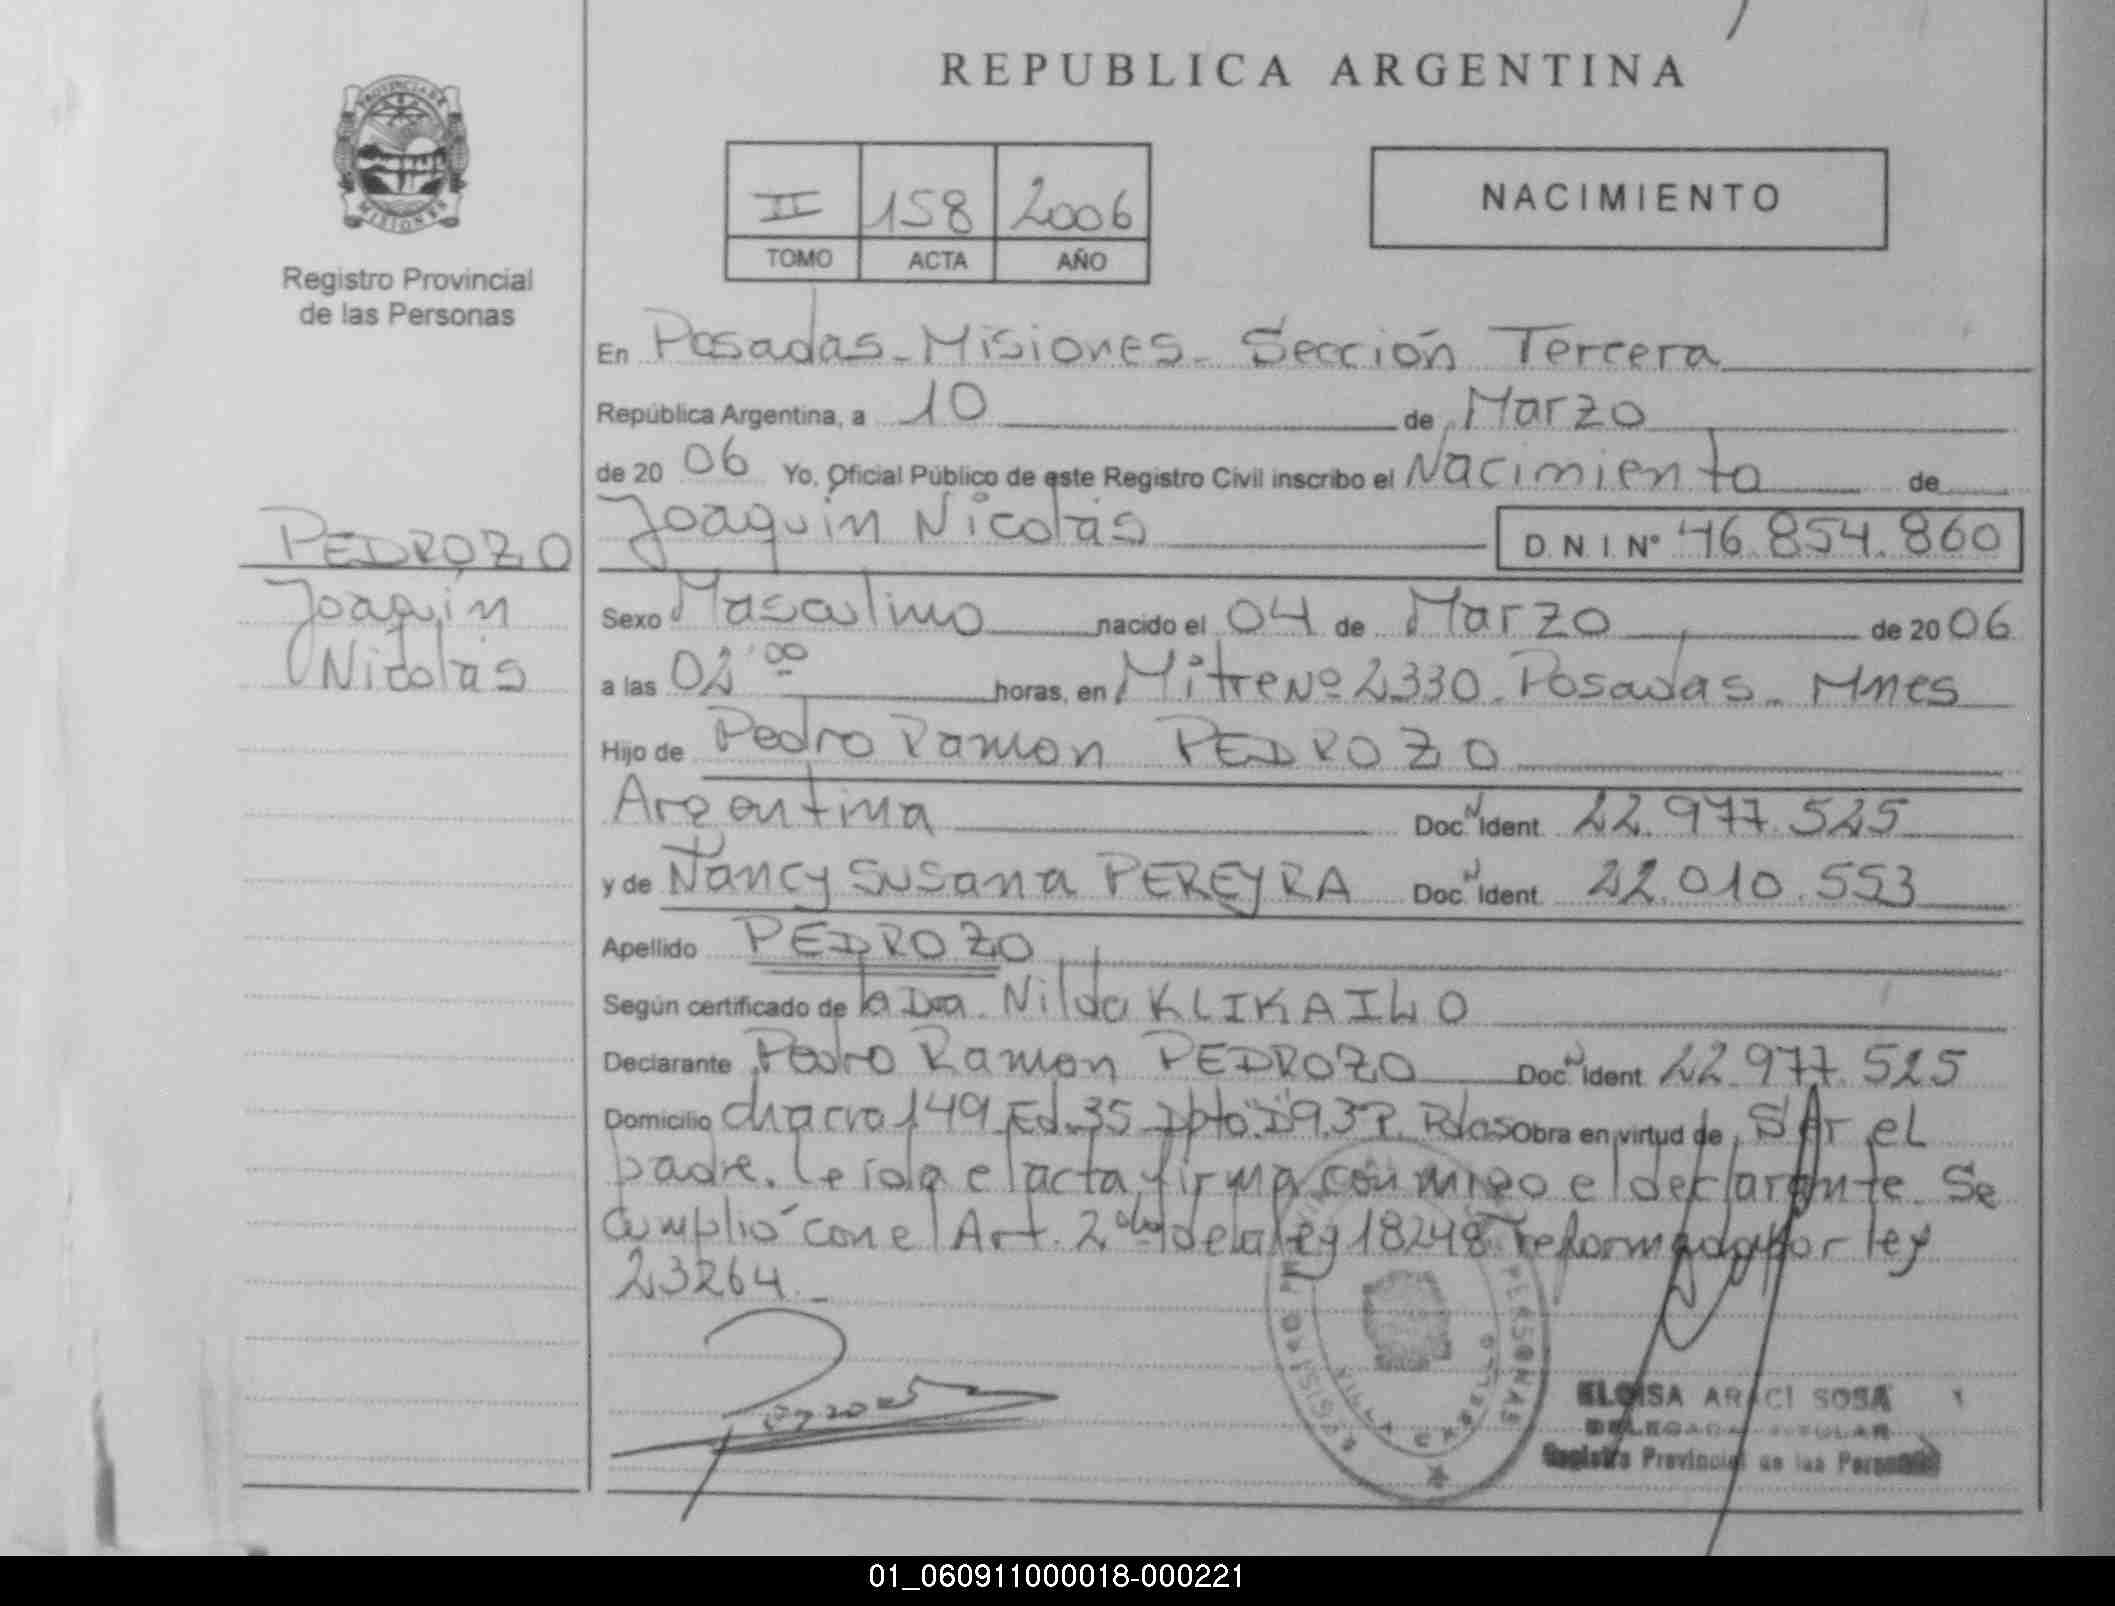 REPUBLICA ARGENTINA
PROVINCIA DE
MISIONES
Registro Provincial
de las Personas
II 158 2006
TOMO ACTA AÑO
NACIMIENTO
En Posadas - Misiones - Sección Tercera
República Argentina, a 10 de Marzo
de 20 06 Yo, Oficial Público de este Registro Civil inscribo el Nacimiento de
Joaquin Nicolás D.N.I. Nº 46.854.860
PEDROZO
Joaquin
Nicolás
Sexo Masculino nacido el 04 de Marzo de 20 06
a las 02 ºº horas, en Mitre Nº 2330. Posadas - Mnes
Hijo de Pedro Ramon PEDROZO
Argentina Doc. Ident. 22.977.525
y de Nancy Susana PEREYRA Doc. Ident. 22.010.553
Apellido PEDROZO
Según certificado de la Dra. Nilda KLIKAILO
Declarante Pedro Ramon PEDROZO Doc. Ident. 22.977.525
Domicilio chacra 149 Ed. 35 Dpto. "D" 9. 3º P. Pdas Obra en virtud de SAr el
padre. Leida el acta, firma conmigo el declarante. Se
cumplió con el Art. 2º de la ley 18248 reformada por ley
23264.-
VILLA CABELLO
PERSONAS
ELOISA ARACI SOSA
DELEGADA TITULAR
Registro Provincial de las Personas
01_060911000018-000221